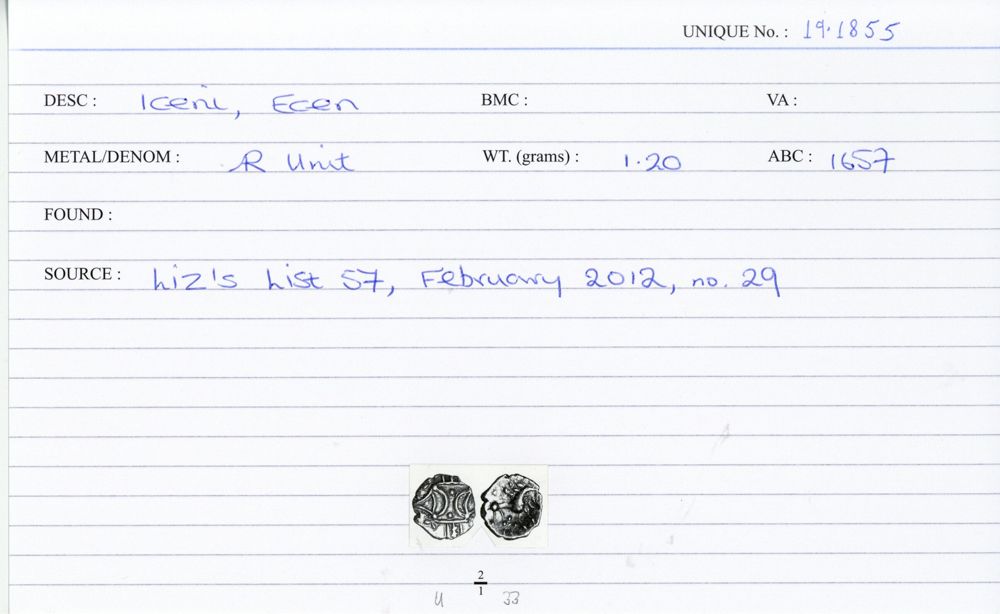 UNIQUE No. : 19.1855
DESC : Iceni, Ecen BMC : VA :
METAL/DENOM : AR Unit WT. (grams) : 1.20 ABC : 1657
FOUND :
SOURCE : Liz's List 57, February 2012, no. 29
2
1
33